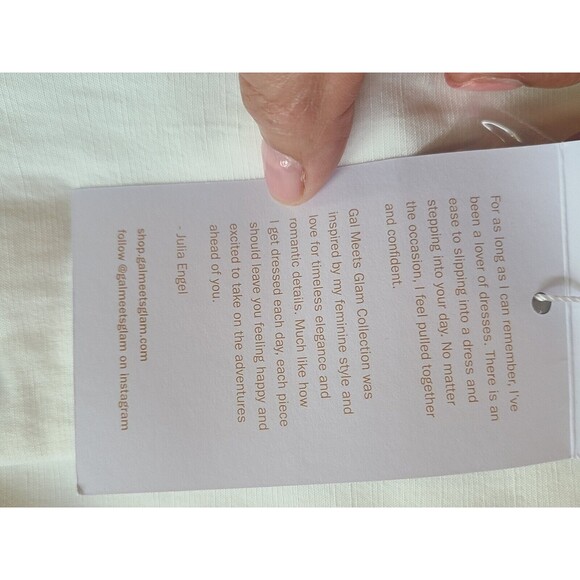 For as long as I can remember, I've
been a lover of dresses. There is an
ease to slipping into a dress and
stepping into your day. No matter
the occasion, I feel pulled together
and confident.
Gal Meets Glam Collection was
inspired by my feminine style and
love for timeless elegance and
romantic details. Much like how
I get dressed each day, each piece
should leave you feeling happy and
excited to take on the adventures
ahead of you.
- Julia Engel
shop.galmeetsglam.com
follow @galmeetsglam on Instagram